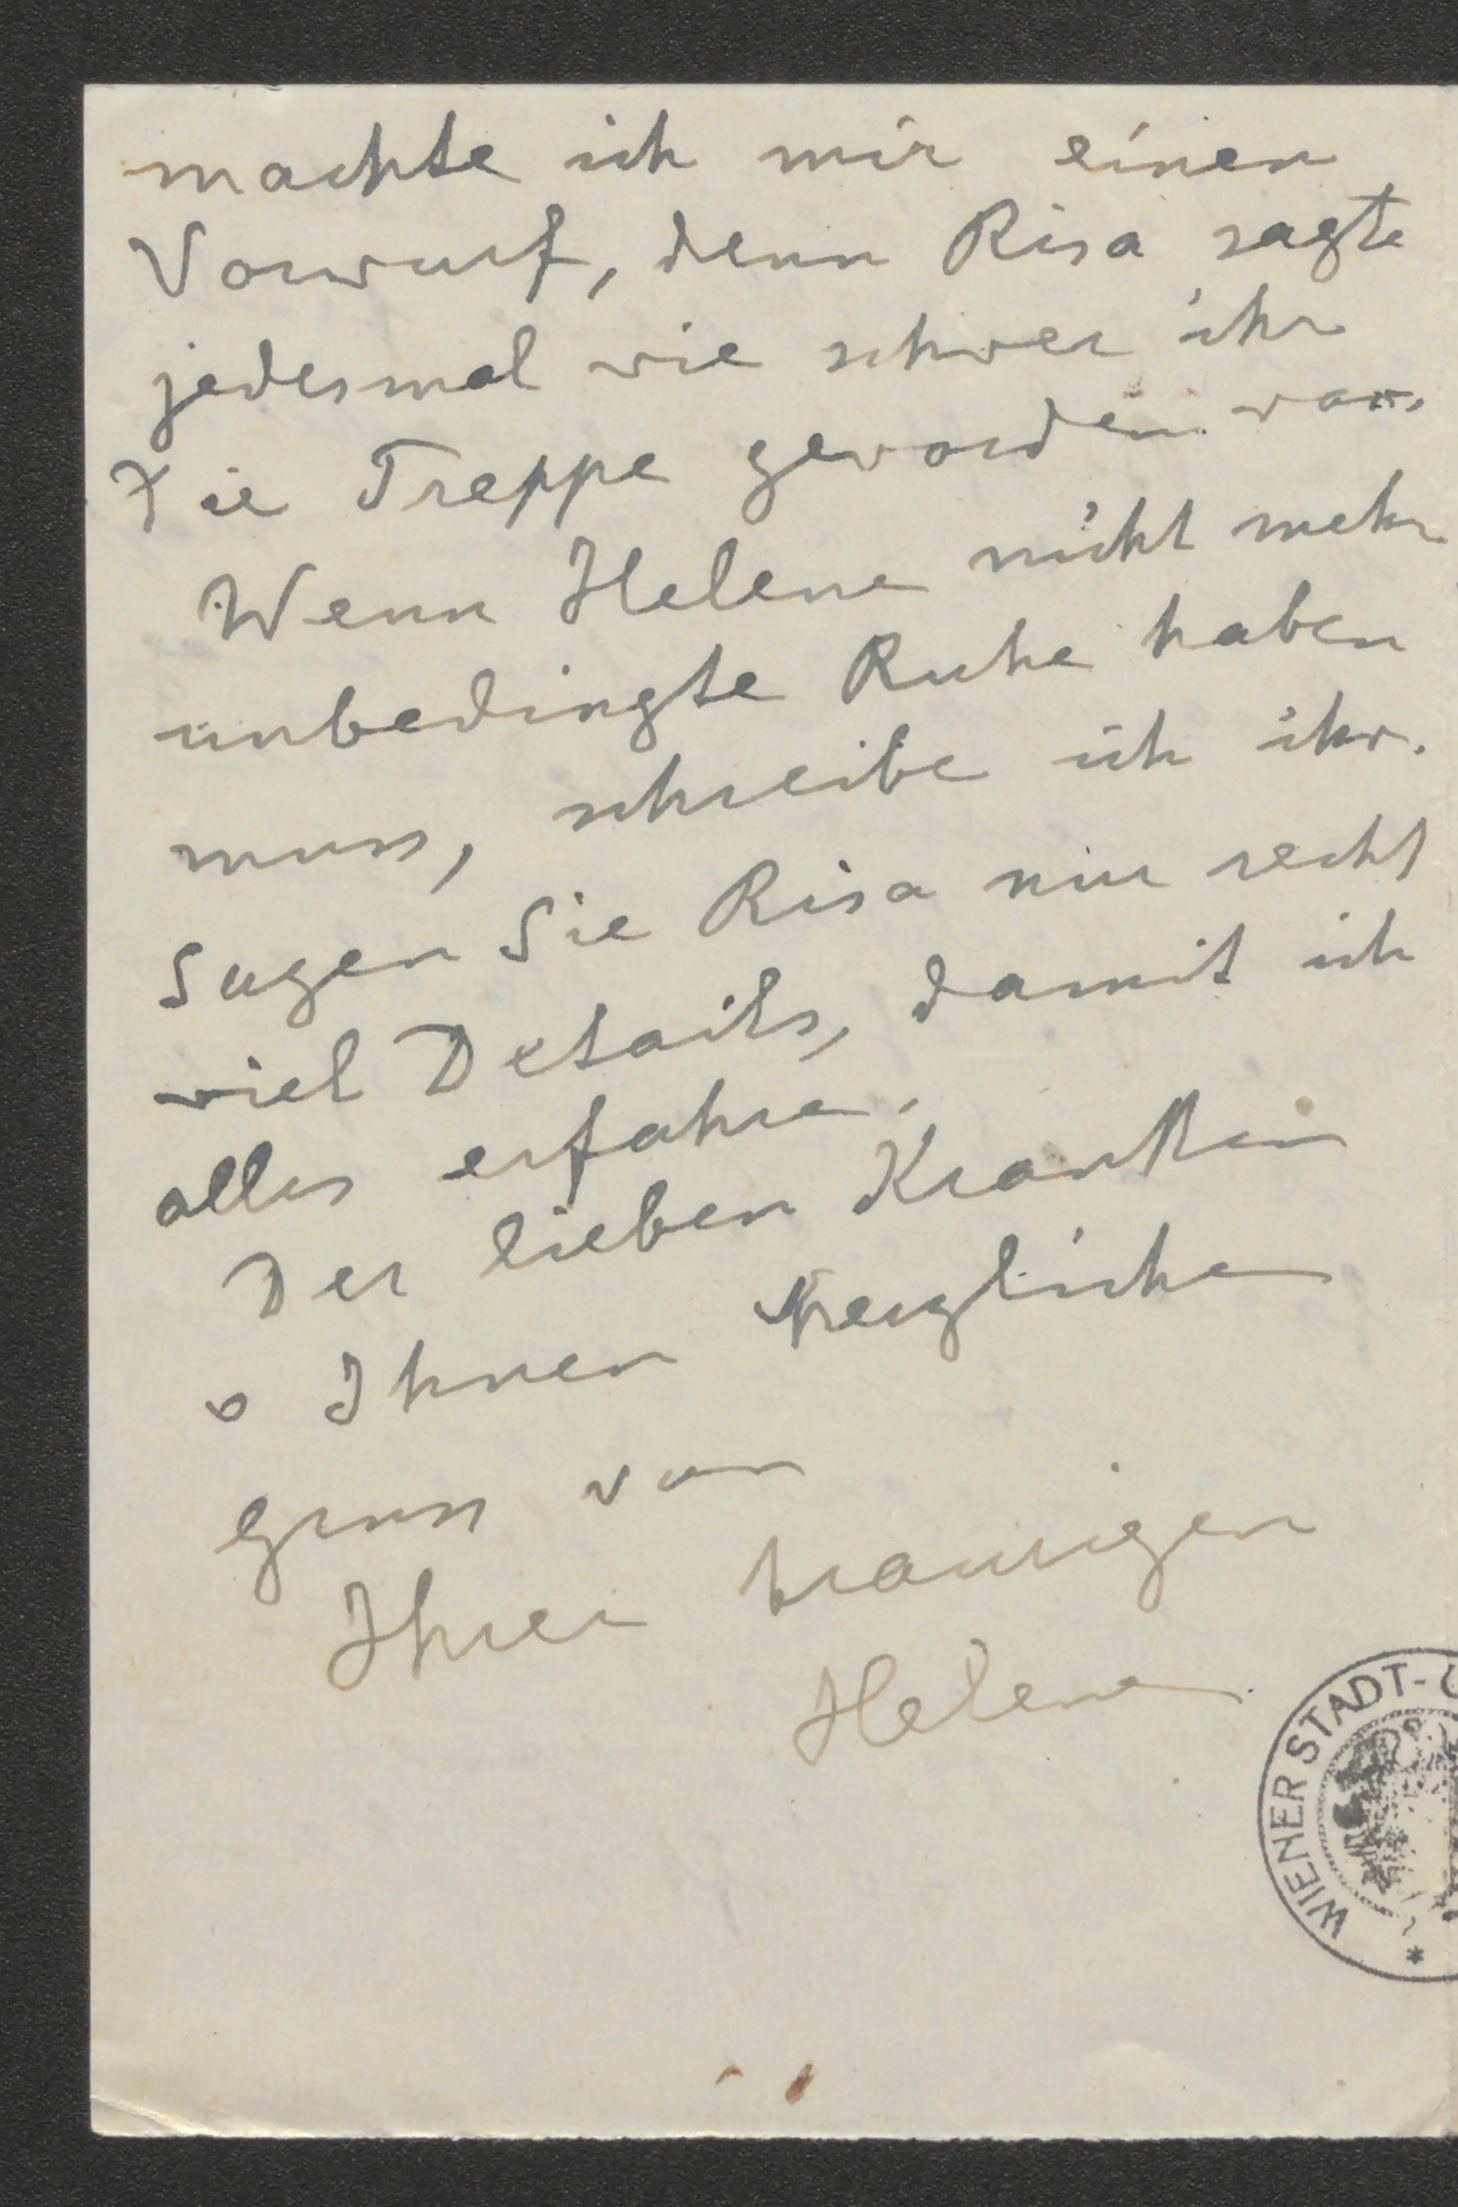 machte ich mir einen
Vorwurf, denn Risa sagte
jedesmal wie schwer ihr
die Treppe geworden war.
Wenn Helene nicht mehr
unbedingte Ruhe haben
muss, schreibe ich ihr.
Sagen Sie Risa nur recht
viel Details, damit ich
alles erfahre.
Der lieben Kranken
u Ihnen herzliche
Gruss von
Ihrer traurigen
Helene
WIENER STADT-